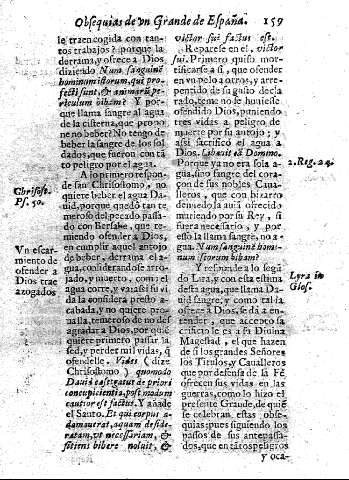 Obsequias de vn Grande de España. 159
le traen cogida con tan-
tos trabajos? porque la
derrama, y ofrece a Dios,
diziendo Num sanguinẽ
hominum istorum, qui pro-
fecti sunt, & animarũ pe-
riculum bibam? Y por-
que llama sangre al agua
de la cisterna, que propo-
ne no beber? No tengo de
beber la sangre de los sol-
dados, que fueron con tã-
to peligro por el agua.
A lo primero respon-
de san Chrisostomo, no
quiere beber el agua Da-
uid, porque quedò tan te-
meroso del pecado passa-
do con Bersabe, que te-
miendo ofender a Dios,
en cumplir aquel antojo
de beber, derrama el a-
gua, considerandose arro-
jado, y muerto, como el
agua corre, y va assi su vi-
da la considera presto a-
cabada, y no quiere pro-
ualla, temeroso de no des-
agradar a Dios, por que
quiere primero passar la
sed, y perder mil vidas, q̃
ofendelle. Vides (dize
Chrisostomo) quomodo
Dauid castigatus de priori
concupicentia, post modum
cautior est factus. Y añade
el Santo. Et qui corpus a-
damauerat, aquam de side-
ratam, vt necessariam, &
sitiens bibere noluit, &
Chrisost.
Ps. 50.
Vn escar-
miento de
ofender a
Dios trae
azogados
victor sui factus est.
Reparese en el, victor
sui. Primero quiso mor-
tificarse a si, que ofender
en vn pelo a otros, y arre-
pentido de su gusto decla
rado, teme no le huuiesse
ofendido Dios, puniendo
tres vidas a peligro de
muerte por su antojo; y
assi sacrificò el agua a
Dios. Libauit eã Domino.
Porque ya no era sola a-
gua, sino sangre del cora-
çon de sus nobles Caua-
lleros, que con bizarro
denuedo la auiã ofrecido
muriendo por su Rey, si
fuera necessario, y por
esso la llama sangre, no a-
gua. Num sanguinẽ homi-
num istorum bibam?
Y respondẽ a lo segũ
do Lira, y con esta estima
desta agua, que llama Da-
uid sangre, y como tal la
ofrece a Dios, se da a en-
tender, que accepta sa-
crificio le es a su Diuina
Magestad, el que hazen
de si los grandes Señores
los Titulos, y Caualleros
que por defensa de la Fè
ofrecen sus vidas en las
guerras, como lo hizo el
presente Grande, de quiẽ
se celebran, estas obse-
quias; pues siguiendo los
passos de sus antepassa-
dos, que en tãtos peligros
y oca-
2. Reg. 24.
Lyra in
Glos.